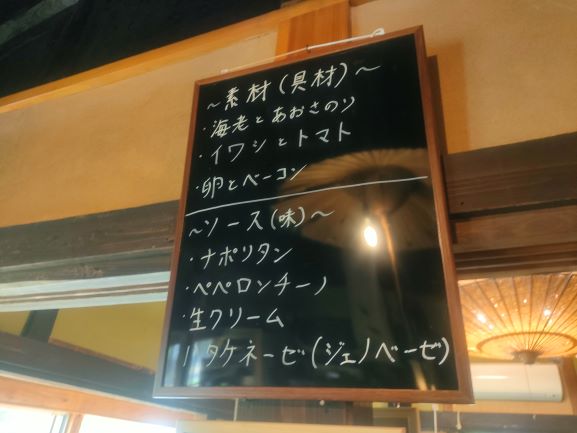 ～素材(具材)～
・海老とあおさのり
・イワシとトマト
・卵とベーコン
～ソース(味)～
・ナポリタン
・ペペロンチーノ
・生クリーム
タケネーゼ(ジェノベーゼ)